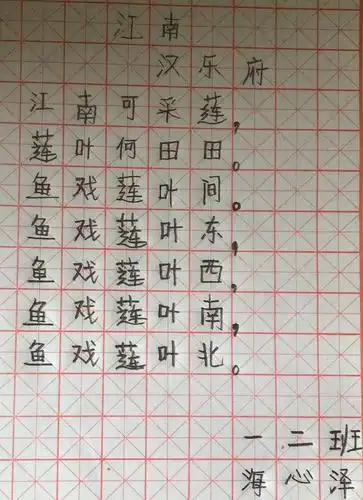 江南
汉乐府
江南可采莲，
莲叶何田田。
鱼戏莲叶间。
鱼戏莲叶东，
鱼戏莲叶西，
鱼戏莲叶南，
鱼戏莲叶北。
一二班
海心泽